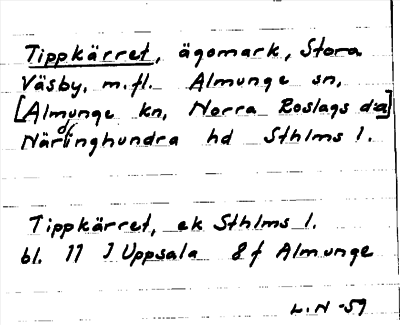 Tippkärret, ägomark, Stora
Väsby, m.fl. Almunge sn,
[Almunge kn, Norra Roslags d:a]
Närdinghundra hd Sthlms l.
Tippkärret, ek Sthlms l.
bl. 77 J Uppsala 8f Almunge
L.N -59